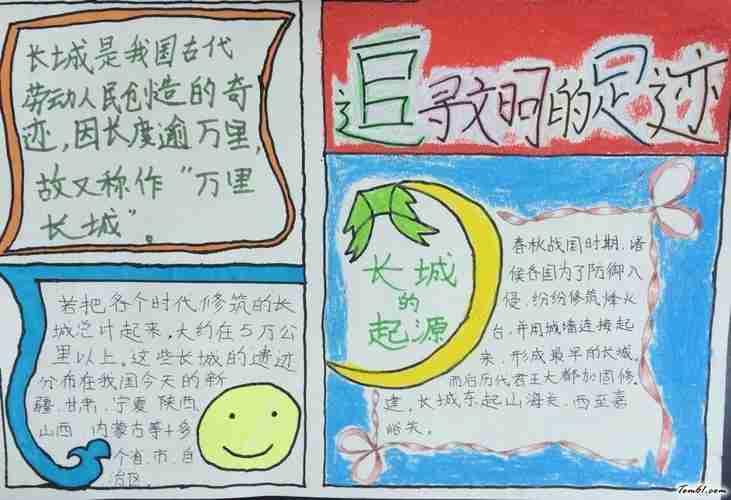 长城是我国古代
劳动人民创造的奇
迹，因长度逾万里，
故又称作“万里
长城”。
若把各个时代修筑的长
城总计起来，大约在5万公
里以上。这些长城的遗迹
分布在我国今天的新
疆、甘肃、宁夏、陕西、
山西、内蒙古等十多
个省、市、自
治区。
追寻文明的足迹
长城
的
起源
春秋战国时期，诸
侯各国为了防御入
侵，纷纷修筑烽火
台，并用城墙连接起
来，形成最早的长城。
而后历代君王大都加固修
建，长城东起山海关，西至嘉
峪关。
Tom61.com